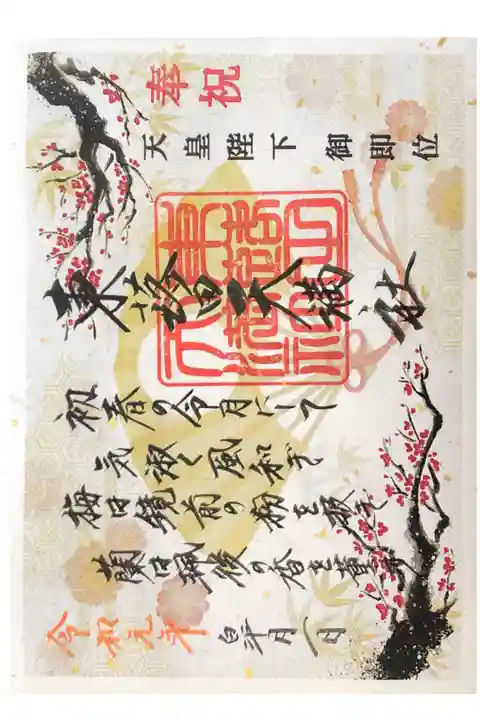 奉祝
天皇陛下 御即位
東蕗田天満社
初春の令月にして
気淑く風和ぎ
梅は鏡前の粉を披き
蘭は珮後の香を薫す
令和元年 皐月一日